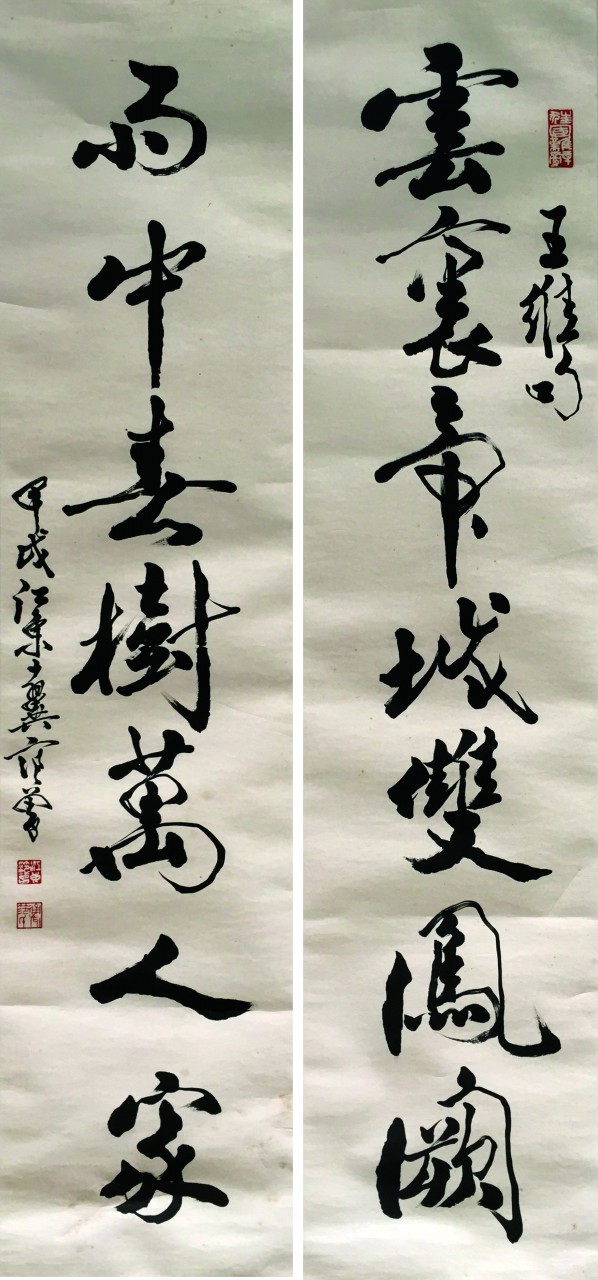 王維句
雲裏帝城雙鳳闕
雨中春樹萬人家
甲戌江東十翼范曾